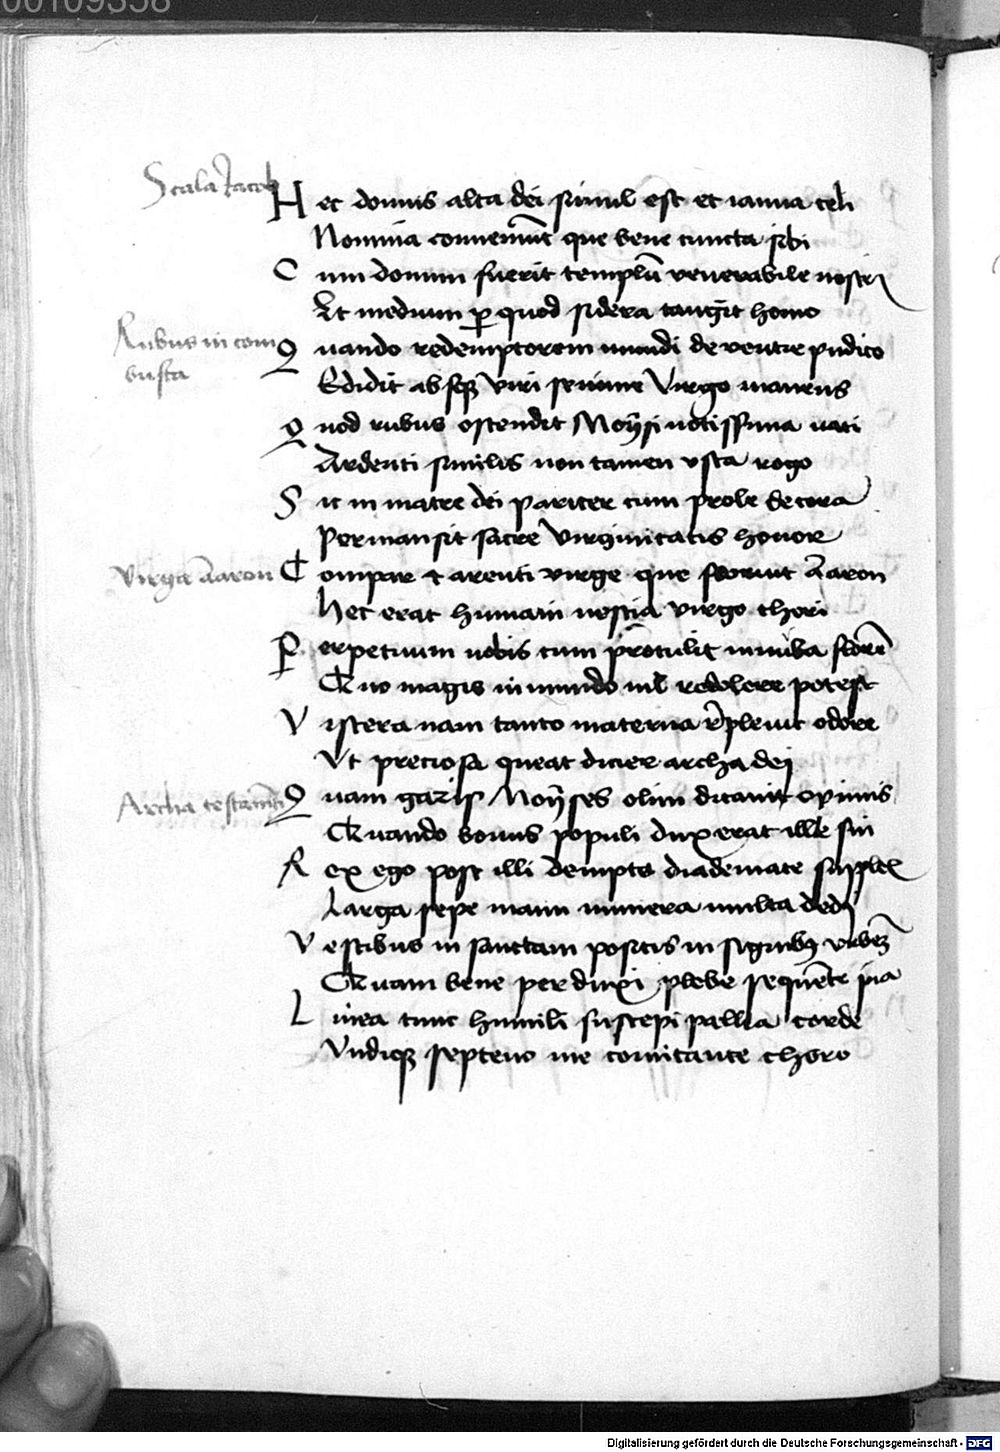 00109358
Scala Jacob
Hec domus alta dei simul est et ianua celi
Nomina conueniunt que bene cuncta sibi
Cum domini fuerit templū venerabile nostri
Et medium per quod sidera tangit homo
Rubus in com
busta
Quando redemptorem mundi de ventre pudico
Edidit absqz viri semine Virgo manens
Quod rubus ostendit Moysi notissima vati
Ardenti similis non tamen vsta rogo
Sic in matre dei pariter cum prole decora
Permansit sacre Virginitatis honor
Virga Aaron
Compar et arenti virge que floruit Aaron
Hec erat humani nescia virgo thori
Perpetuum nobis cum protulit innuba florē
Quo magis in mundo nil redolere potest
Viscera nam tanto materna repleuit odore
Vt preciosa queat dicier archa dei
Archa testamēti
Quam gazis Moyses olim ditauit opimis
Quando bonus populi dux erat ille sui
Rex ego post illi dempto diademate supplex
Larga sepe manu munera multa dedi
Vestibus in sanctam positis in signibz vrbez
Quam bene perduxi plebe sequēte pia
Linea tunc humili suscepi pallia corde
Vndiqz septeno me comitante choro
Digitalisierung gefördert durch die Deutsche Forschungsgemeinschaft - DFG